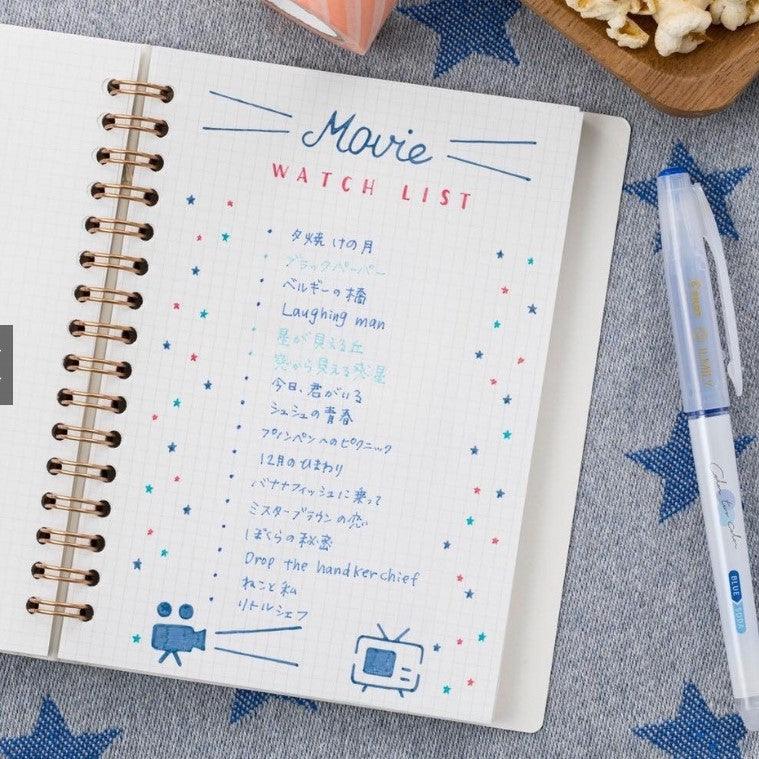 Movie
WATCH LIST
夕焼けの月
ブラックペーパー
ベルギーの橋
Laughing man
星が見える丘
窓から見える惑星
今日、君がいる
シュシュの青春
プノンペンへのピクニック
12月のひまわり
バナナフィッシュに乗って
ミスターブラウンの恋
ぼくらの秘密
Drop the handkerchief
ねこと私
リトルシェフ
PILOT
ILMILY
Color Two Color
BLUE